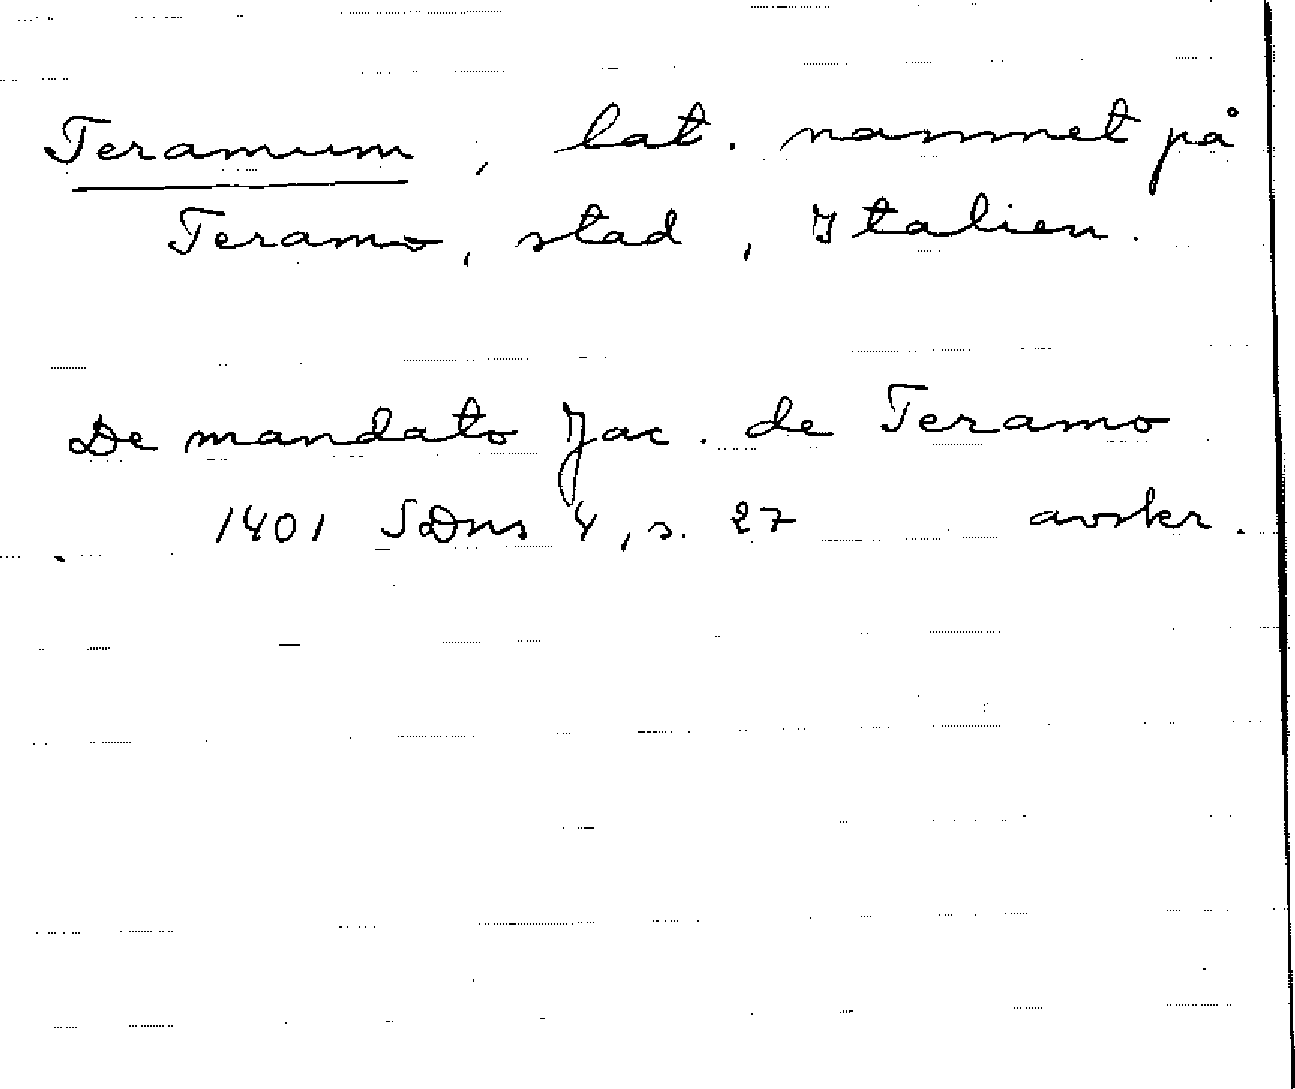 Teramum, lat. namnet på
Teramo, stad, Italien.
De mandato Jac. de Teramo
1401 SDns 4, s. 27 avskr.